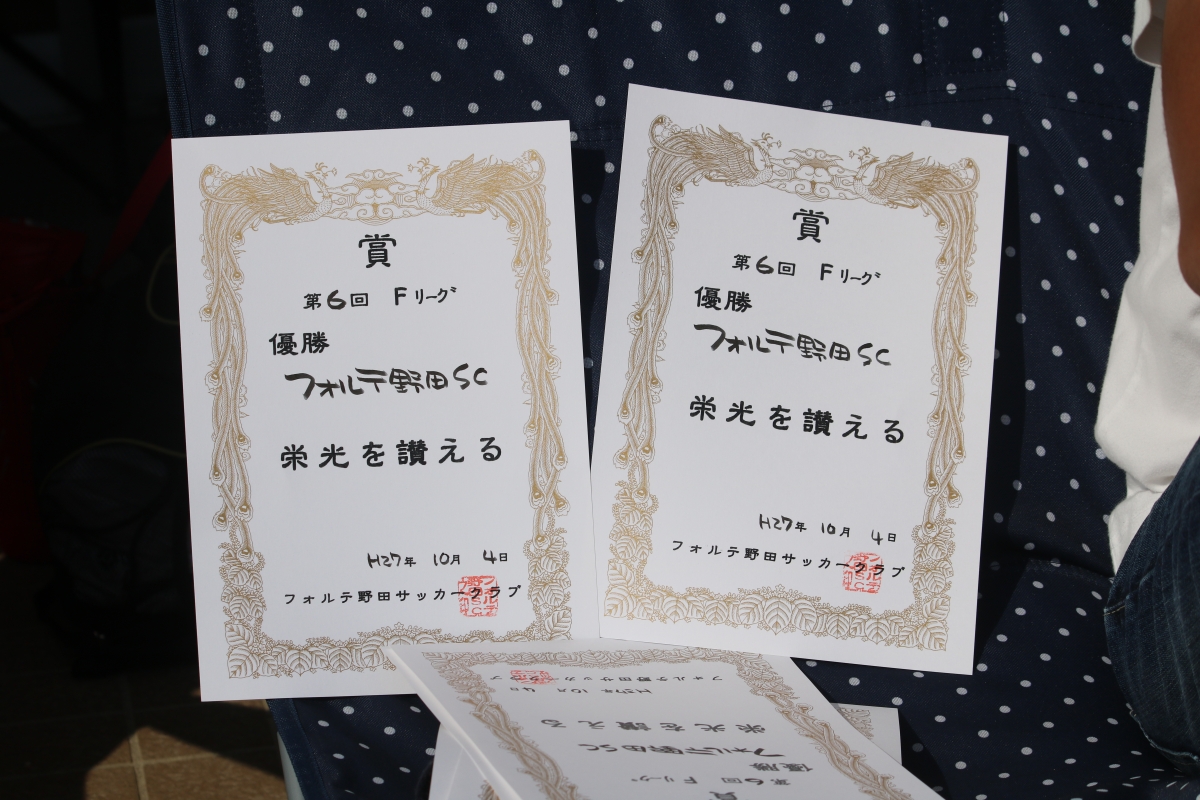 賞
第6回 Fリーグ
優勝
フォルテ野田SC
栄光を讃える
H27年 10月 4日
フォルテ野田サッカークラブ
賞
第6回 Fリーグ
優勝
フォルテ野田SC
栄光を讃える
H27年 10月 4日
フォルテ野田サッカークラブ
賞
第6回 Fリーグ
優勝
フォルテ野田SC
栄光を讃える
H27年 10月 4日